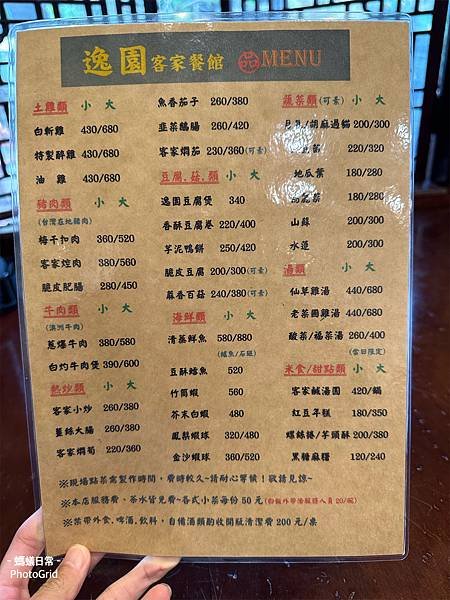 逸園客家餐館 品MENU
土雞類 小 大
白斬雞 430/680
特製醉雞 430/680
油 雞 430/680
豬肉類 小 大
(台灣在地豬肉)
梅干扣肉 360/520
客家焢肉 380/560
脆皮肥腸 280/450
牛肉類 小 大
(澳洲牛肉)
蔥爆牛肉 380/580
白灼牛肉煲 390/600
熱炒類 小 大
客家小炒 260/380
薑絲大腸 260/380
客家燜筍 220/360
魚香茄子 260/380
韭菜鵝腸 260/420
客家燜茄 230/360(可素)
豆腐.菇.類 小 大
逸園豆腐煲 340
香酥豆腐卷 220/400
芋泥鴨餅 250/420
脆皮豆腐 200/300(可素)
蒜香百菇 240/380(可素)
海鮮類 小 大
清蒸鮮魚 580/880
(鱸魚/石斑)
豆酥鱈魚 520
竹筒蝦 560
芥末白蝦 480
鳳梨蝦球 320/480
金沙蝦球 360/520
蔬菜類(可素) 小 大
胡麻過貓 200/300
220/320
地瓜葉 180/280
180/280
山蘇 200/300
水蓮 200/300
湯類 小 大
仙草雞湯 440/680
老菜圃雞湯 440/680
酸菜/福菜湯 260/400
(當日限定)
米食/甜點類 小 大
客家鹹湯圓 420/鍋
紅豆年糕 180/350
螺絲捲/芋頭酥 200/380
黑糖麻糬 120/240
※現場點菜需製作時間，費時較久~請耐心等候！敬請見諒~
※本店服務費、茶水皆免費~各式小菜每份 50 元(白飯外帶洽服務人員 20/碗)
※禁帶外食,啤酒.飲料，自備酒類酌收開瓶清潔費 200 元/桌
- 螞蟻日常 -
PhotoGrid